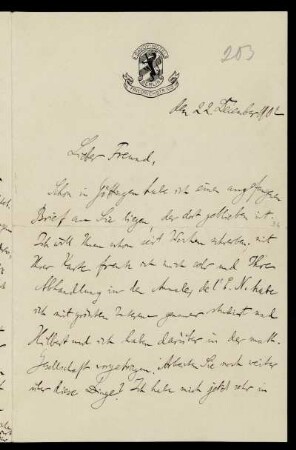 203
den 22 Dezember 1902
Lieber Freund,
Schon in Göttingen habe ich einen angefangenen
Brief an Sie liegen der dort geblieben ist.
Ich will Ihnen schon seit Wochen schreiben, mit
Ihrer Karte freute ich mich sehr und Ihre
Abhandlung in den Annales de l'É. N. habe
ich mit größtem Interesse genauer studiert und
Hilbert und ich haben darüber in der math.
Gesellschaft vorgetragen. Arbeiten Sie noch weiter
über diese Dinge? Ich habe mich jetzt sehr in